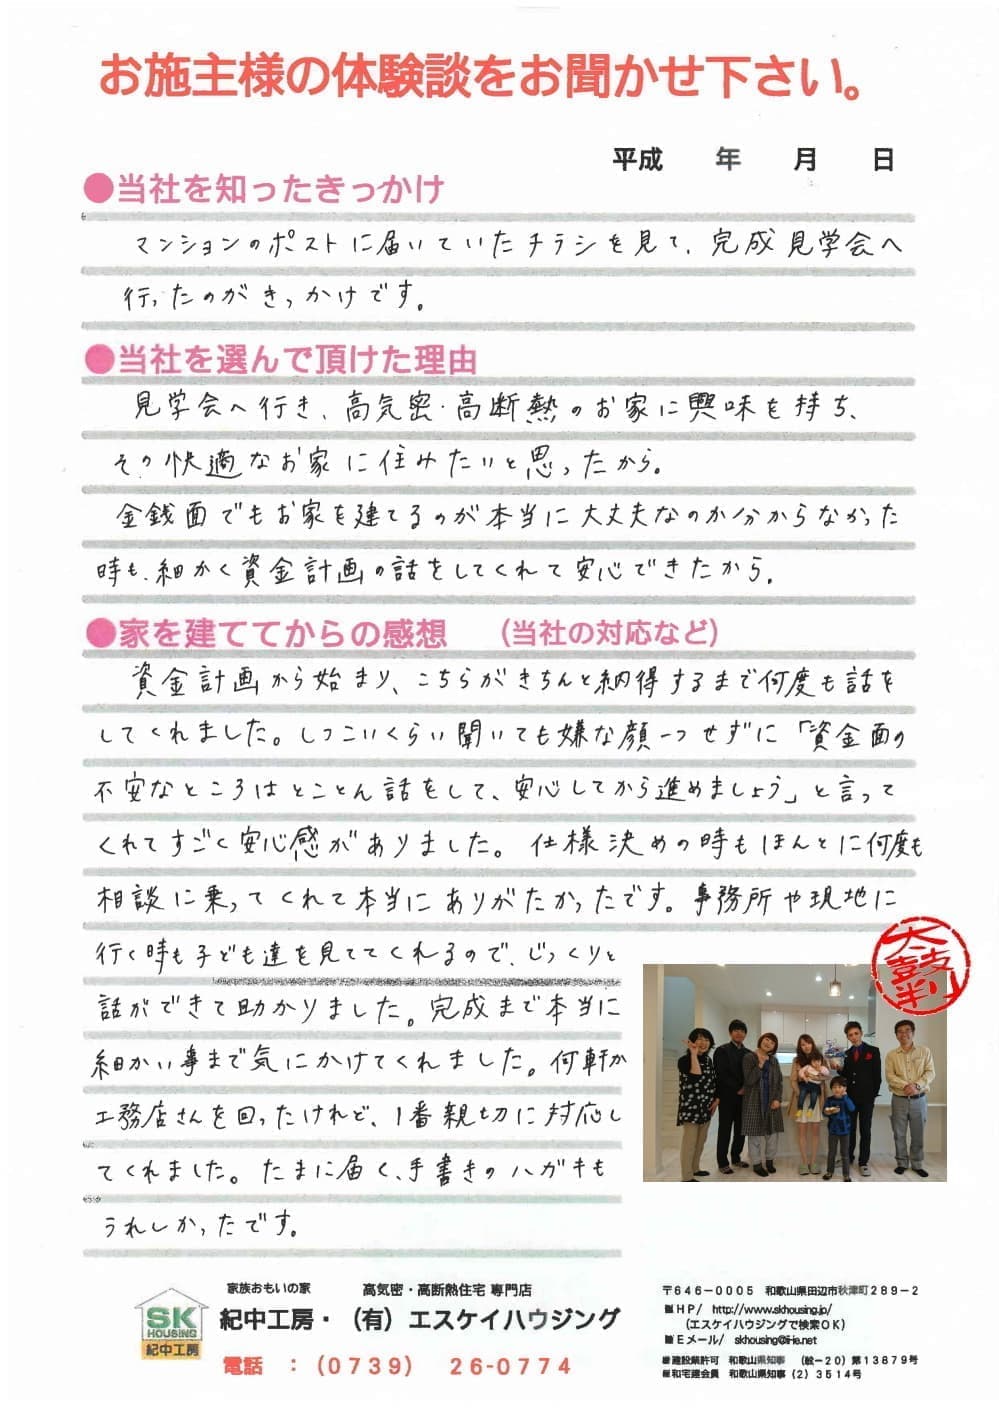 お施主様の体験談をお聞かせ下さい。
平成　年　月　日
●当社を知ったきっかけ
マンションのポストに届いていたチラシを見て、完成見学会へ
行ったのがきっかけです。
●当社を選んで頂けた理由
見学会へ行き、高気密・高断熱のお家に興味を持ち、
その快適なお家に住みたいと思ったから。
金銭面でもお家を建てるのが本当に大丈夫なのか分からなかった
時も、細かく資金計画の話をしてくれて安心できたから。
●家を建ててからの感想　（当社の対応など）
資金計画から始まり、こちらがきちんと納得するまで何度も話を
してくれました。しつこいくらい聞いても嫌な顔一つせずに「資金面の
不安なところはとことん話をして、安心してから進めましょう」と言って
くれてすごく安心感がありました。仕様決めの時もほんとに何度も
相談に乗ってくれて本当にありがたかったです。事務所や現地に
行く時も子ども達を見ててくれるので、じっくりと
話ができて助かりました。完成まで本当に
細かい事まで気にかけてくれました。何軒か
工務店さんを回ったけれど、1番親切に対応し
てくれました。たまに届く、手書きのハガキも
うれしかったです。
太鼓判
SK
HOUSING
紀中工房
家族おもいの家　高気密・高断熱住宅 専門店
紀中工房・（有）エスケイハウジング
電話　：（0739）　26-0774
〒646-0005　和歌山県田辺市秋津町289-2
■HP/　http://www.skhousing.jp/
（エスケイハウジングで検索OK）
■Eメール/　skhousing@iHe.net
■建設業許可　和歌山県知事　（般-20）第13879号
■和宅建会員　和歌山県知事（2）3514号